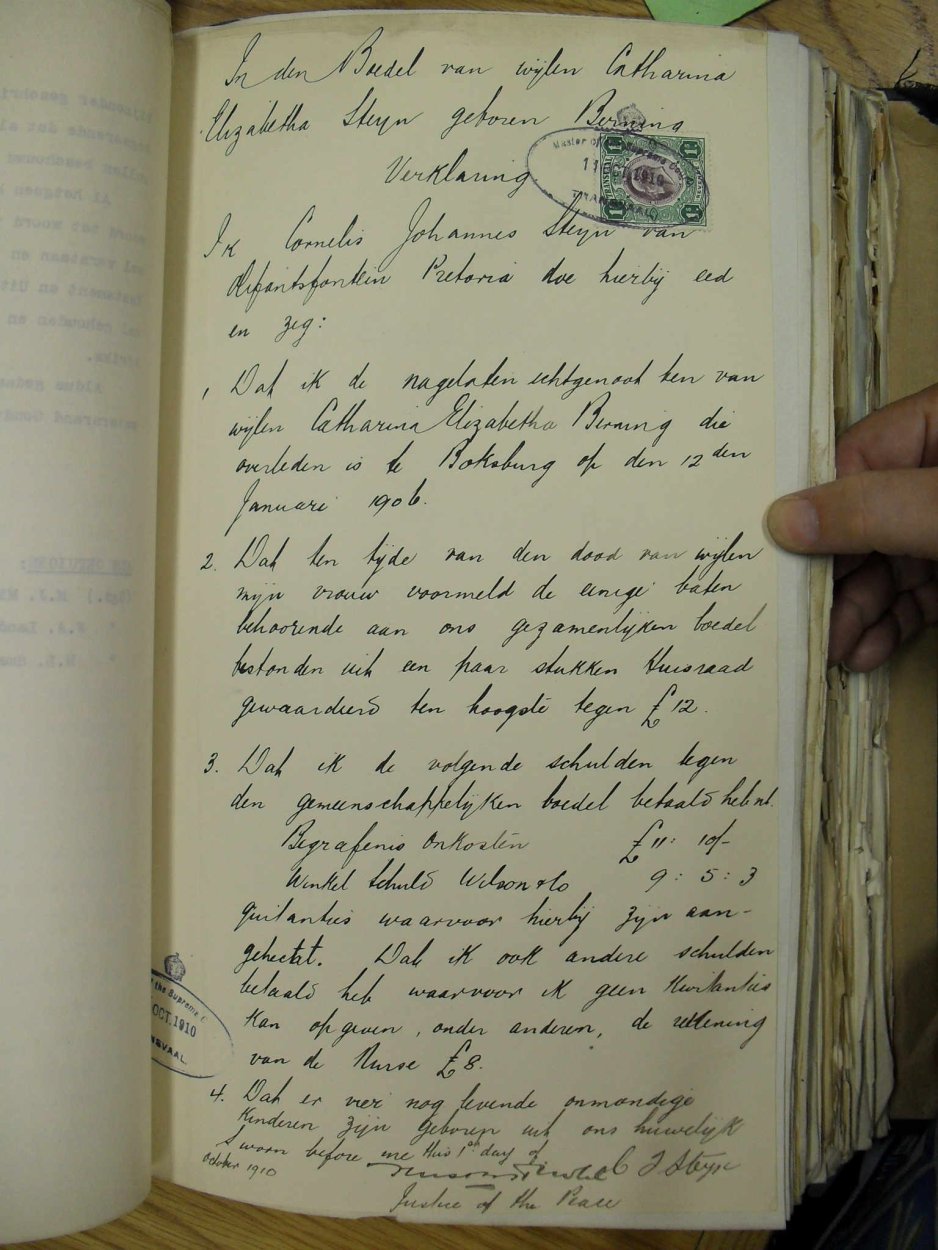 In den Boedel van wijlen Catharina
Elizabetha Steyn geboren Berning
Verklaring
Master of the Supreme Court
1910
TRANSVAAL
TRANSVAAL
Ik Cornelis Johannes Steyn van
Olifantsfontein Pretoria doe hierbij eed
en zeg:
1 Dat ik de nagelaten echtgenoot ben van
wijlen Catharina Elizabetha Berning die
overleden is te Boksburg op den 12 den
Januari 1906.
2. Dat ten tijde van den dood van wijlen
mijn vrouw voormeld de eenige baten
behoorende aan ons gezamenlijken boedel
bestonden uit een paar stukken Huisraad
gewaardeerd ten hoogste tegen £12.
3. Dat ik de volgende schulden tegen
den gemeenschappelijken boedel betaald heb nl.
Begrafenis Onkosten £11: 10/-
Winkel Schuld Wilson & Co 9 : 5 : 3
quitanties waarvoor hierbij zijn aan-
gehecht. Dat ik ook andere schulden
betaald heb waarvoor ik geen Kwitanties
kan opgeven, onder anderen, de rekening
van de Nurse £8.
4. Dat er vier nog levende onmondige
Kinderen zijn geboren uit ons huwelijk
Sworn before me this 1st day of
October 1910
C J Steyn
Justice of the Peace
the Supreme C
OCT. 1910
NSVAAL